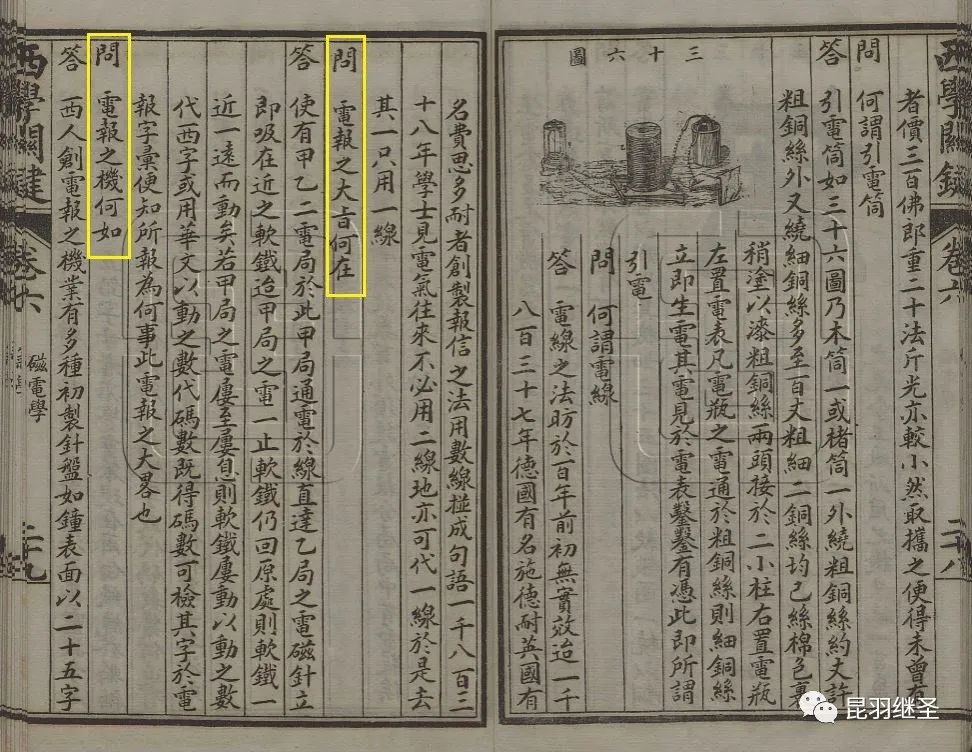 西學關鍵 卷六 二十八
者價三百佛郎重二十法斤光亦較小然取攜之便得未曾有
問 何謂引電筒
答 引電筒如三十六圖乃木筒一或楮筒一外繞粗銅絲約丈許
粗銅絲外又繞細銅絲多至百丈粗細二銅絲均已絲棉包裹
三十六圖
稍塗以漆粗銅絲兩頭接於二小柱右置電瓶
左置電表凡電瓶之電通於粗銅絲則細銅絲
立即生電其電見於電表鑿鑿有憑此即所謂
引電
問 何謂電線
答 電線之法昉於百年前初無實效迨一千
八百三十七年德國有名施德耐英國有
名費思多耐者創製報信之法用數線椪成句語一千八百三
十八年學士見電氣往來不必用二線地亦可代一線於是去
其一只用一線
問 電報之大旨何在
答 使有甲乙二電局於此甲局通電於線直達乙局之電磁針立
即吸在近之軟鐵迨甲局之電一止軟鐵仍回原處則軟鐵一
近一遠而動矣若甲局之電屢至屢息則軟鐵屢動以動之數
代西字或用華文以動之數代碼數既得碼數可檢其字於電
報字彙便知所報為何事此電報之大畧也
問 電報之機何如
答 西人創電報之機業有多種初製針盤如鐘表面以二十五字
西學關鍵 卷六 磁電學 二十九
昆羽继圣